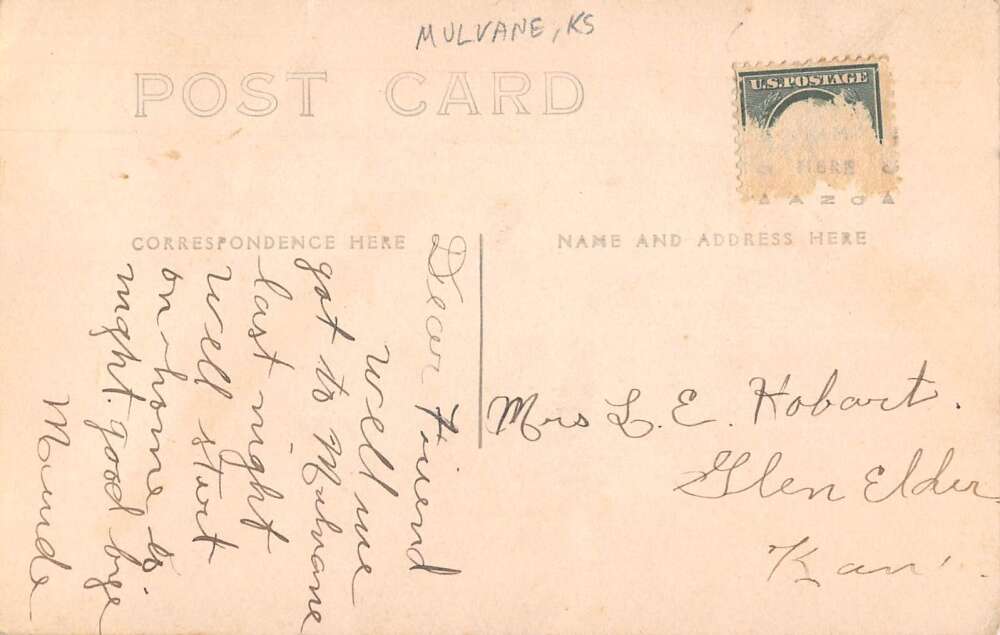 MULVANE, KS
POST CARD
U.S.POSTAGE
HERE
AZO
CORRESPONDENCE HERE
NAME AND ADDRESS HERE
Dear Friend
Well we
got to Mulvane
last night
Well start
on home to
night. good bye
Maude
Mrs L. E. Hobart.
Glen Elder
Kan.